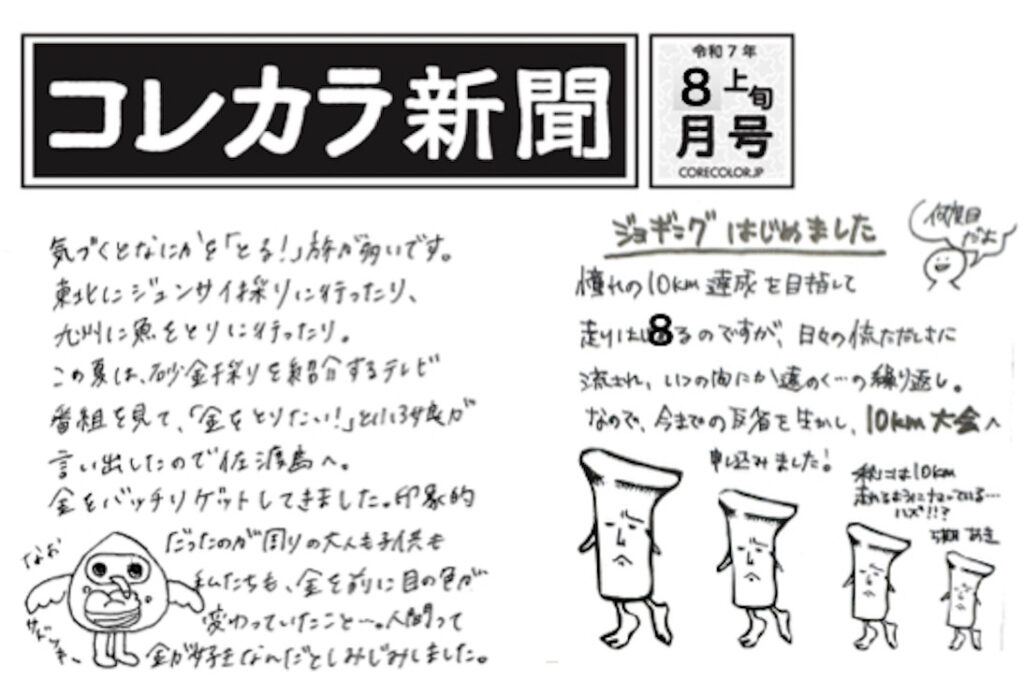 コレカラ新聞
令和7年
8上旬
月号
CORECOLOR.JP
気づくとなにかを「とる!」旅が多いです。
東北にジュンサイ採りに行ったり、
九州に魚をとりに行ったり。
この夏は、砂金採りを紹介するテレビ
番組を見て、「金をとりたい!」という娘が
言い出したので佐渡島へ。
金をバッチリゲットしてきました。印象的
だったのが周りの大人も子供も
私たちも、金を前に目の色が
変わっていたこと…。人間って
金が好きなんだとしみじみしました。
なお
ジョギングはじめました
何度目
だよ
憧れの10km達成を目指して
走りは8るのですが、日々の慌ただしさに
流され、いつの間にか遠のく…の繰り返し。
なので、今までの反省を生かし、10km大会へ
申し込みました!
秋には10km
走れるようになっている…
ハズ!!?
あき